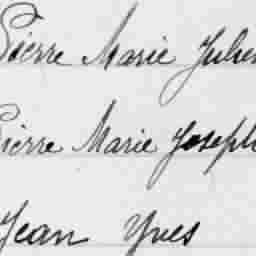 Pierre Marie Julien
Pierre Marie Joseph
Jean Yves